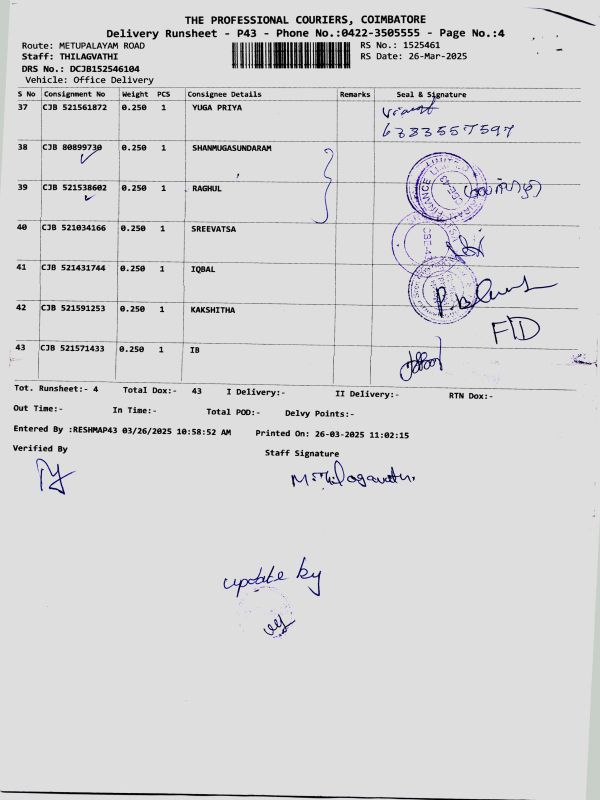 THE PROFESSIONAL COURIERS, COIMBATORE
Delivery Runsheet - P43 - Phone No.:0422-3505555 - Page No.:4
Route: METUPALAYAM ROAD RS No.: 1525461
Staff: THILAGVATHI RS Date: 26-Mar-2025
DRS No.: DCJB152546104
Vehicle: Office Delivery
S No Consignment No Weight PCS Consignee Details Remarks Seal & Signature
37 CJB 521561872 0.250 1 YUGA PRIYA
6383557597
38 CJB 80899730 0.250 1 SHANMUGASUNDARAM
39 CJB 521538602 0.250 1 RAGHUL
40 CJB 521034166 0.250 1 SREEVATSA
41 CJB 521431744 0.250 1 IQBAL
42 CJB 521591253 0.250 1 KAKSHITHA
FID
43 CJB 521571433 0.250 1 IB
Tot. Runsheet:- 4 Total Dox:- 43 I Delivery:- II Delivery:- RTN Dox:-
Out Time:- In Time:- Total POD:- Delvy Points:-
Entered By :RESHMAP43 03/26/2025 10:58:52 AM Printed On: 26-03-2025 11:02:15
Verified By Staff Signature
update by